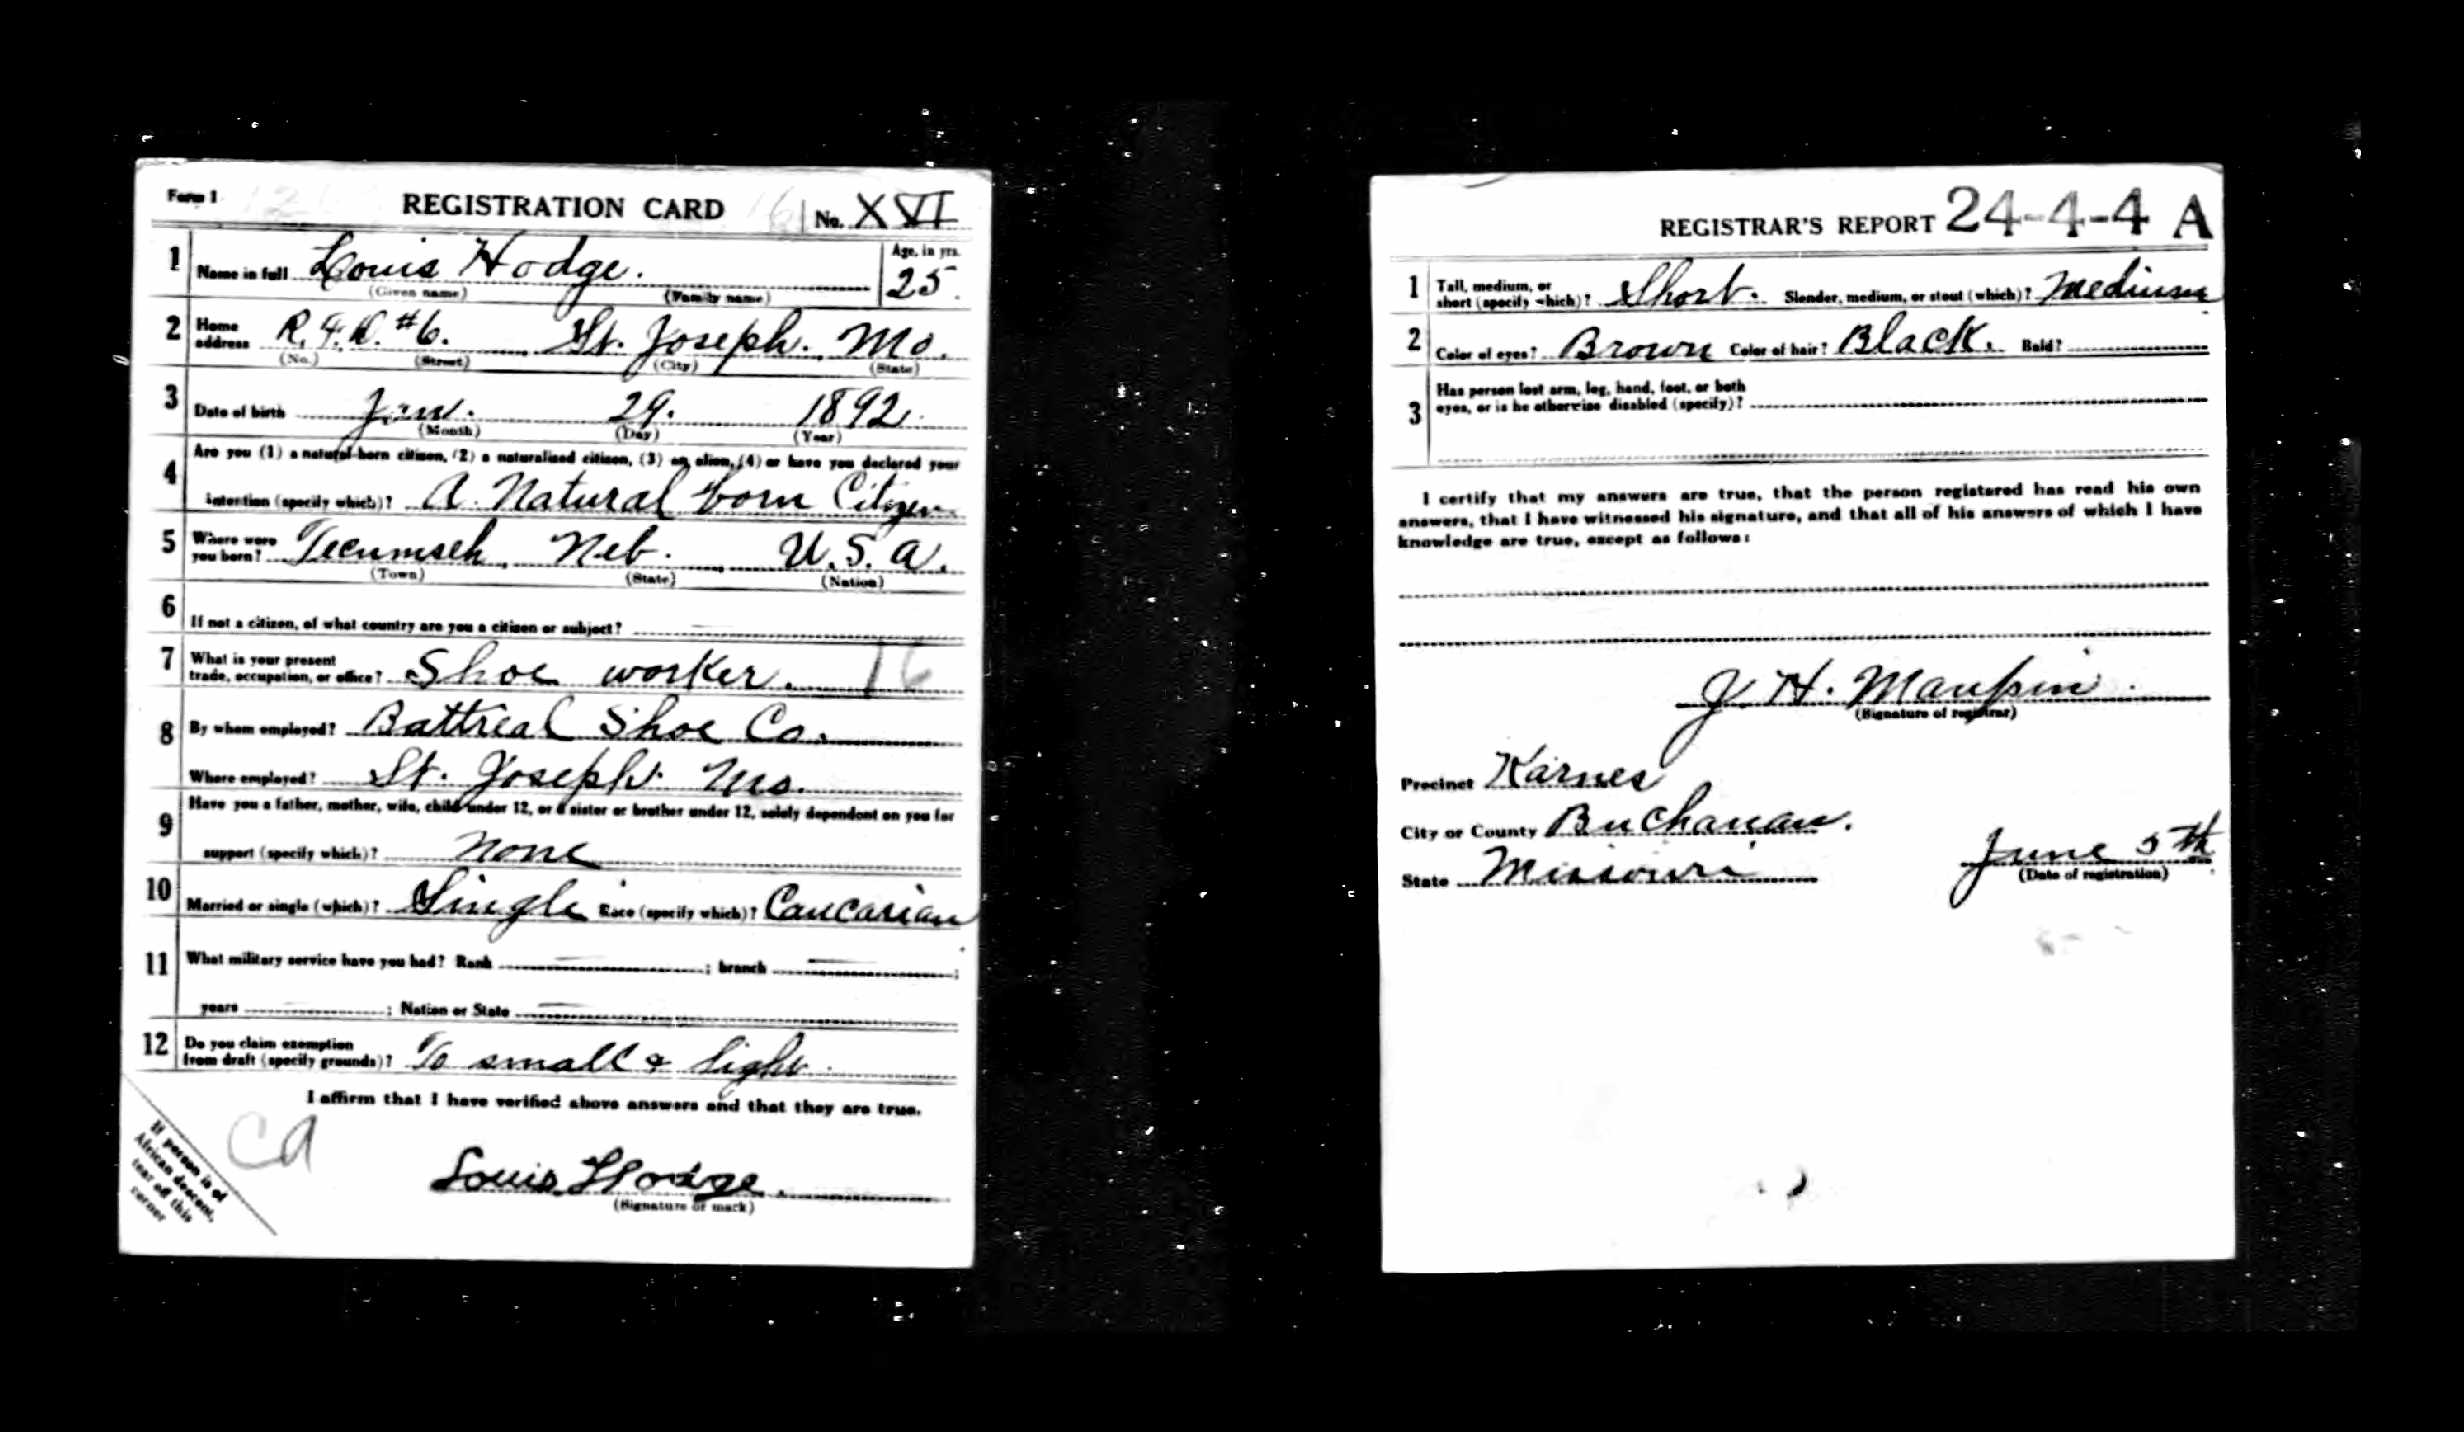 Form 1
REGISTRATION CARD
No. XVI
1 Name in full Louis Hodge.
(Given name) (Family name)
Age, in yrs.
25
2 Home address R.F.D. #6. St. Joseph. Mo.
(No.) (Street) (City) (State)
3 Date of birth Jan. 29. 1892
(Month) (Day) (Year)
4 Are you (1) a natural-born citizen, (2) a naturalized citizen, (3) an alien, (4) or have you declared your
intention (specify which)? A. Natural born Citizen
5 Where were you born? Tecumseh, Neb. U.S.A.
(Town) (State) (Nation)
6 If not a citizen, of what country are you a citizen or subject?
7 What is your present
trade, occupation, or office? Shoe worker. 16
8 By whom employed? Battreal Shoe Co.
Where employed? St. Joseph. Mo.
9 Have you a father, mother, wife, child under 12, or a sister or brother under 12, solely dependent on you for
support (specify which)? None
10 Married or single (which)? Single Race (specify which)? Caucasian
11 What military service have you had? Rank ; branch ;
years ; Nation or State
12 Do you claim exemption
from draft (specify grounds)? To small & light
I affirm that I have verified above answers and that they are true.
CA
Louis Hodge.
(Signature or mark)
If person is of
African descent,
tear off this
corner
REGISTRAR'S REPORT 24-4-4 A
1 Tall, medium, or
short (specify which)? Short. Slender, medium, or stout (which)? Medium
2 Color of eyes? Brown Color of hair? Black. Bald?
3 Has person lost arm, leg, hand, foot, or both
eyes, or is he otherwise disabled (specify)?
I certify that my answers are true, that the person registered has read his own
answers, that I have witnessed his signature, and that all of his answers of which I have
knowledge are true, except as follows:
J. H. Maupin
(Signature of registrar)
Precinct Karnes
City or County Buchanan.
State Missouri
June 5th
(Date of registration)